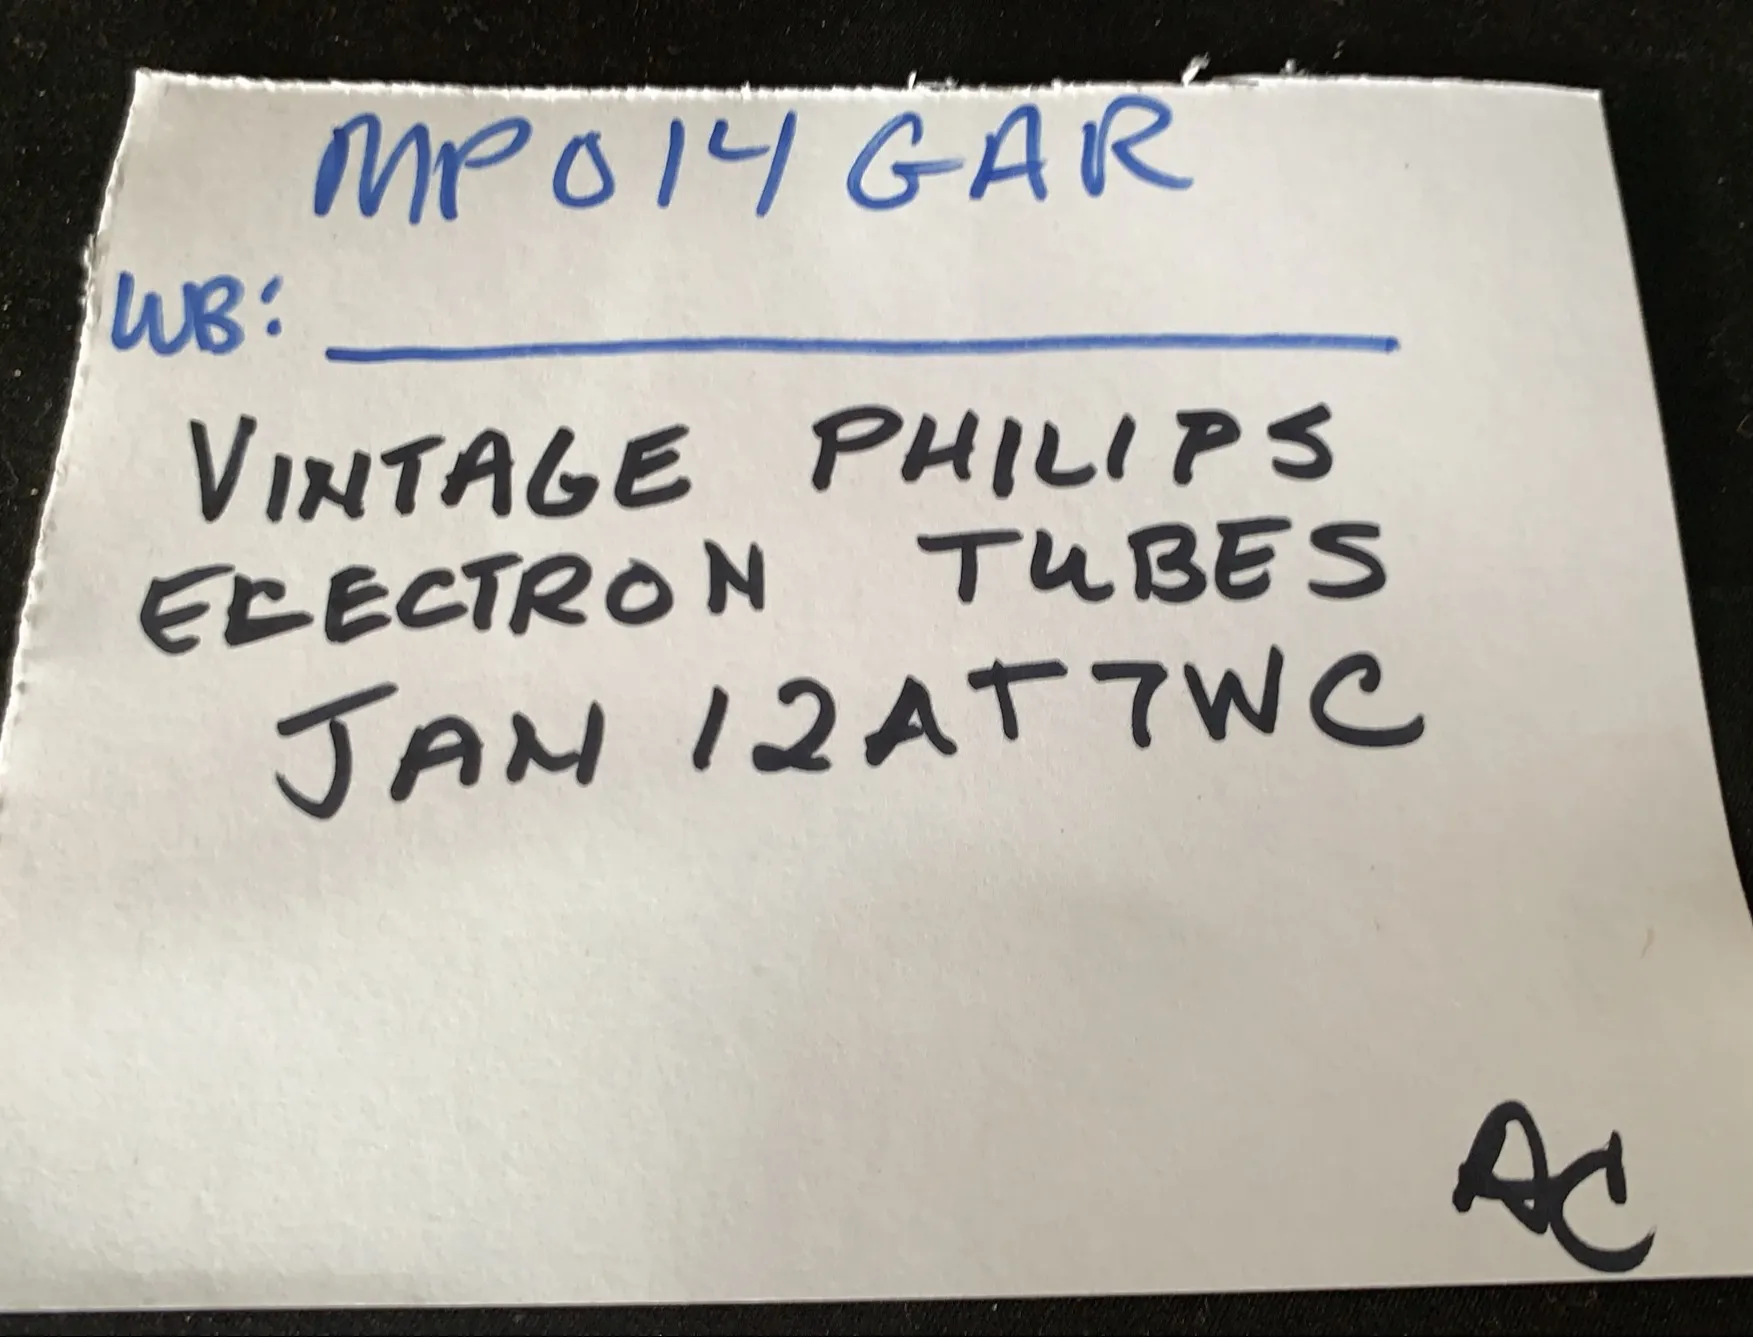 MP014GAR
WB:
VINTAGE PHILIPS
ELECTRON TUBES
JAN 12AT7WC
AC